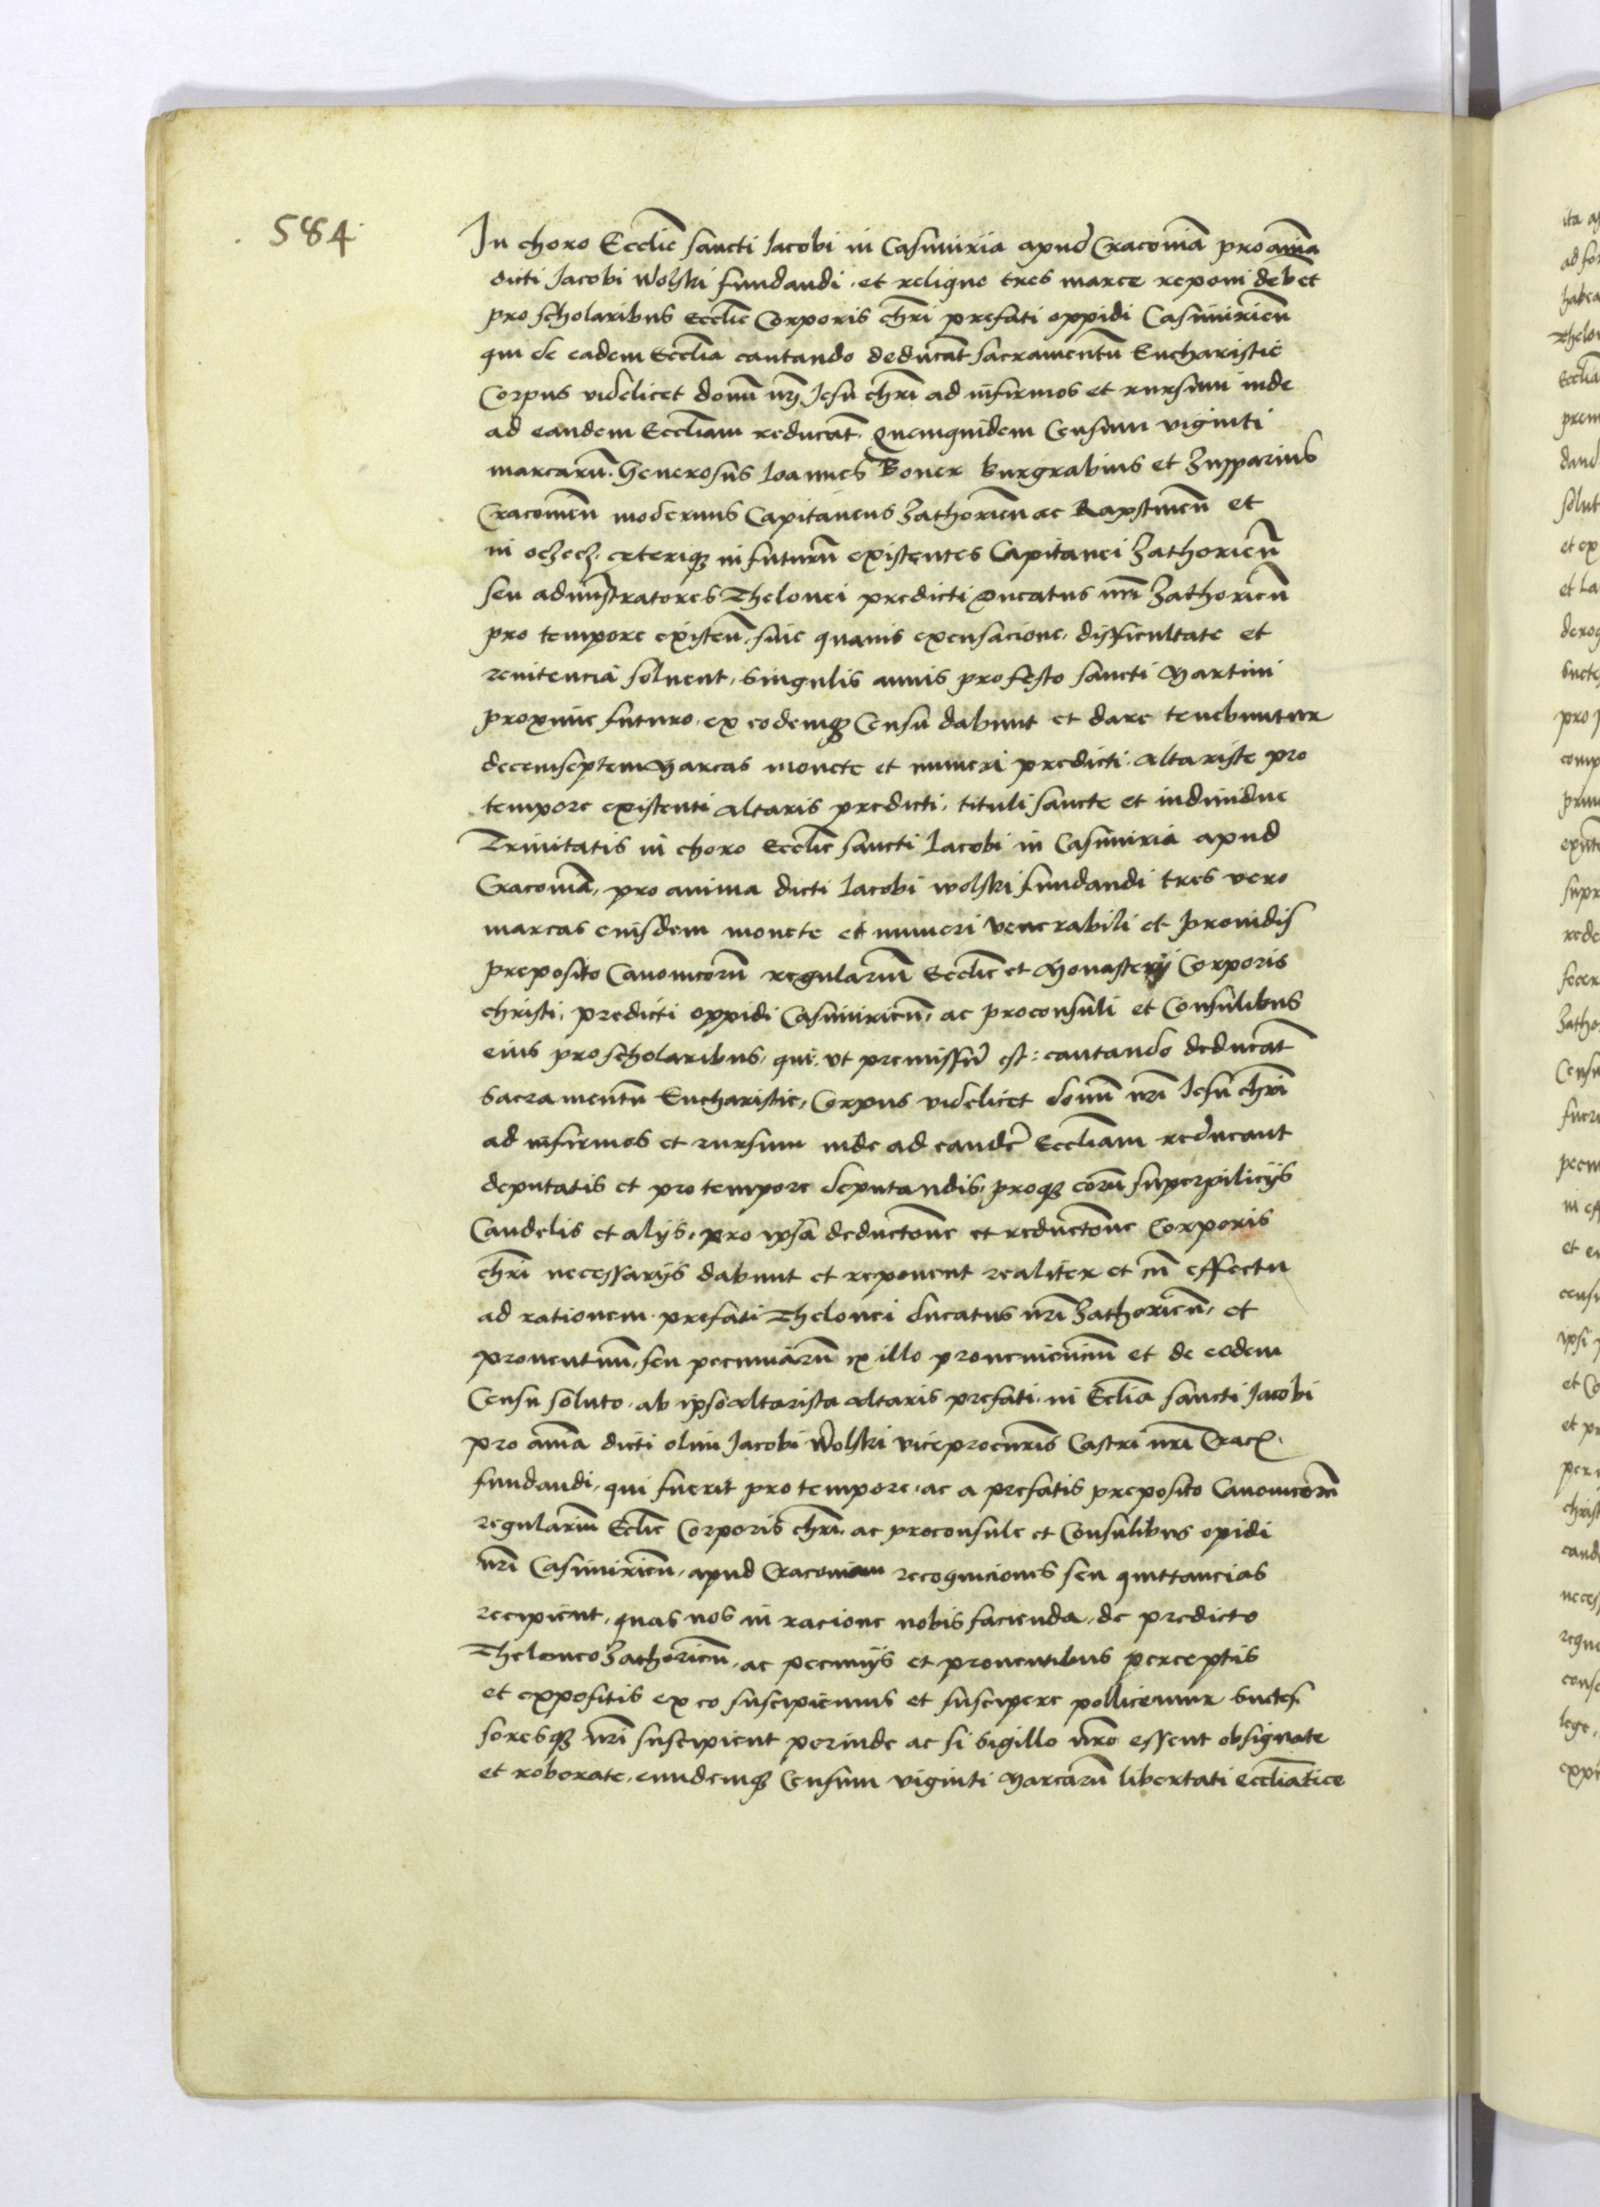 584
In choro Ecclie sancti Jacobi in Casimiria apud Cracoviā pro aīma
dicti Jacobi Wolski fundandi et relique tres marce reponi debēt
pro scholaribus Ecclie Corporis chri prefati oppidi Casimirieñ
qui de eadem Ecclia cantando deducāt sacramentū Eucharistie
Corpus videlicet domī nrī Jesu chrī ad infirmos et rursum inde
ad eandem Eccliam reducāt. Quemquidem Censum viginti
marcarū. Generosus Joannes Boner burgrabius et Zupparius
Cracovieñ modernus Capitaneus Zathorieñ ac Rapstineñ et
in oczecz. ceteriqz in futurū existentes Capitanei Zathorieñ
seu administratores Thelonei predicti Ducatus nrī Zathorieñ
pro tempore existeñ. sine quavis excusacione, difficultate et
renitencia solvent, singulis annis pro festo sancti Martini
proxime futuro, ex eodemqz Censu dabunt et dare tenebuntur
decemseptem Marcas monete et numeri predicti. altariste pro
tempore existenti altaris predicti, tituli sancte et individue
Trinitatis in choro Ecclie sancti Jacobi in Casimiria apud
Cracoviā, pro anima dicti Jacobi wolski fundandi tres vero
marcas eiusdem monete et numeri venerabili et providis
preposito Canonicorū regulariū Ecclie et Monasterij Corporis
christi, predicti oppidi Casimirieñ, ac proconsuli et Consulibus
eius pro scholaribus, qui, ut premissū est: cantando deducāt
sacramentū Eucharistie, Corpus videlicet domī nrī Jesu chrī
ad infirmos et rursum inde ad eandē Eccliam reducant
deputatis et pro tempore deputandis, proqz eorū superpilicijs
Candelis et alijs, pro ipsa deductōne et reductōne Corporis
chrī necessarijs dabunt et reponent realiter et cū effectu
ad rationem prefati Thelonei ducatus nrī Zathorieñ, et
proventuū, seu pecuniarū ex illo provenienciū et de eodem
Censu soluto, ab ipso altarista altaris prefati, in Ecclia sancti Jacobi
pro aīma dicti olim Jacobi Wolski viceprocuris Castri nrī Crac.
fundandi, qui fuerit pro tempore, ac a prefatis preposito Canonicorū
regulariū Ecclie Corporis chrī, ac proconsule et Consulibus opidi
nrī Casimirieñ, apud Cracoviam recogniciones seu quittancias
recipient, quas nos in racione nobis facienda, de predicto
Theloneo Zathorieñ, ac pecunijs et proventibus perceptis
et expositis ex eo suscipiemus et suscipere pollicemur succes
soresqz nrī suscipient perinde ac si sigillo nrō essent obsignate
et roborate, eundemqz Censum viginti Marcarū libertati eccliatice